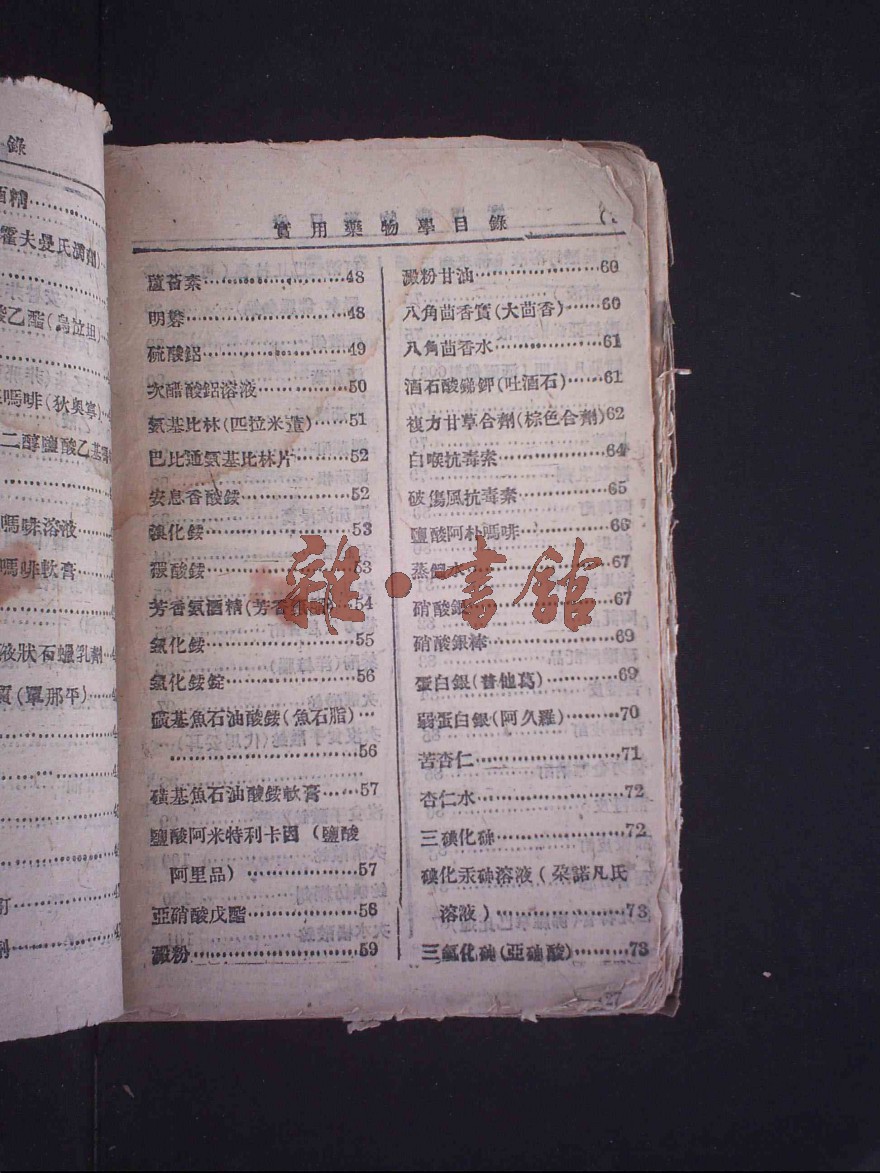 錄
酒精
霍夫曼氏滴劑)
酸乙酯(烏拉坦)
嗎啡(狄奧寧)
二醇鹽酸乙基
嗎啡溶液
嗎啡軟膏
液狀石蠟乳劑
(單那平)
實用藥物學目錄
蘆薈素 48
明礬 48
硫酸鋁 49
次醋酸鋁溶液 50
氨基比林(匹拉米董) 51
巴比通氨基比林片 52
安息香酸銨 52
溴化銨 53
碳酸銨 53
芳香氨酒精(芳香 54
氯化銨 55
氯化銨錠 56
磺基魚石油酸銨(魚石脂)
56
磺基魚石油酸銨軟膏 57
鹽酸阿米特利卡因(鹽酸
阿里品) 57
亞硝酸戊酯 58
澱粉 59
澱粉甘油 60
八角茴香實(大茴香) 60
八角茴香水 61
酒石酸銻鉀(吐酒石) 61
複方甘草合劑(棕色合劑)62
白喉抗毒素 64
破傷風抗毒素 65
鹽酸阿朴嗎啡 66
蒸餾水 67
硝酸銀 67
硝酸銀棒 69
蛋白銀(普他葛) 69
弱蛋白銀(阿久羅) 70
苦杏仁 71
杏仁水 72
三碘化砷 72
碘化汞砷溶液(朶諾凡氏
溶液) 73
三氧化砷(亞砷酸) 73
雜·書館